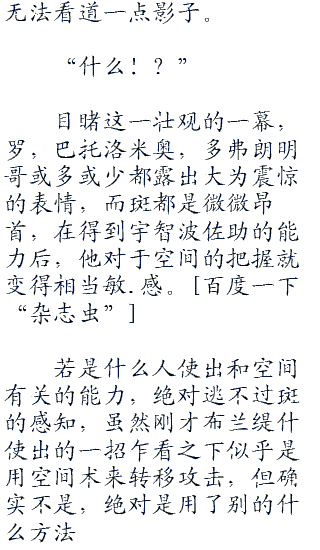 无法看道一点影子。
“什么！？”
目睹这一壮观的一幕，
罗，巴托洛米奥，多弗朗明
哥或多或少都露出大为震惊
的表情，而斑都是微微昂
首，在得到宇智波佐助的能
力后，他对于空间的把握就
变得相当敏.感。[百度一下
“杂志虫”]
若是什么人使出和空间
有关的能力，绝对逃不过斑
的感知，虽然刚才布兰缇什
使出的一招乍看之下似乎是
用空间术来转移攻击，但确
实不是，绝对是用了别的什
么方法